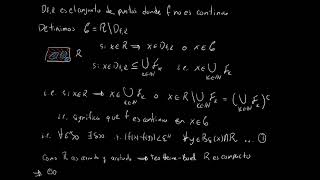 D_{f,R} es el conjunto de puntos donde f no es continua
Definimos G = R \ D_{f,R}
R si x∈R → x∈D_{f,R} o x∈G
si x∈D_{f,R} ⊆ ⋃_{k∈N} F_k → x∈⋃_{k∈N} F_k
i.e. si x∈R → x∈⋃_{k∈N} F_k o x∈R\⋃_{k∈N} F_k = (⋃_{k∈N} F_k)^c
i.e. significa que f es continua en x∈G
i.e. ∀ε>0 ∃δ>0 t. |f(x)-f(y)|<ε ∀y∈B_δ(x)∩R ... ①
Como R es cerrado y acotado → Teo Heine-Borel R es compacto
→ ∞